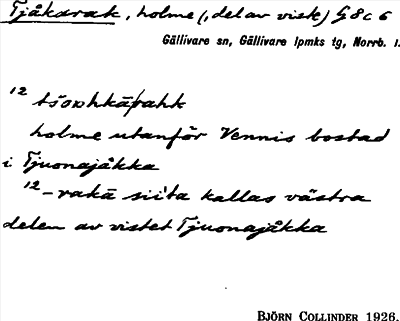 Tjåkarak, holme (, del av viste) G 8 c 6
Gällivare sn, Gällivare lpmks tg, Norrb. l.
12
holme utanför Vennis bostad
i Tjuonajåkka
12 -rakā siita kallas västra
delen av vistet Tjuonajåkka
BJÖRN COLLINDER 1926.